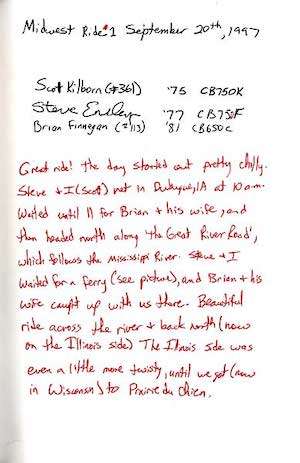 Midwest Ride #1 September 20th, 1997
Scott Kilborn (#361) '75 CB750K
Steve '77 CB750F
Brian Finnegan (#113) '81 CB650C
Great ride! The day started out pretty chilly.
Steve + I (Scott) met in Dubuque, IA at 10 a.m.
Waited until 11 for Brian + his wife, and
then headed north along 'The Great River Road',
which follows the Mississippi River. Steve + I
waited for a ferry (see picture), and Brian + his
wife caught up with us there. Beautiful
ride across the river + back north (now
on the Illinois side) The Illinois side was
even a little more twisty, until we got (now
in Wisconsin) to Prairie du Chien.